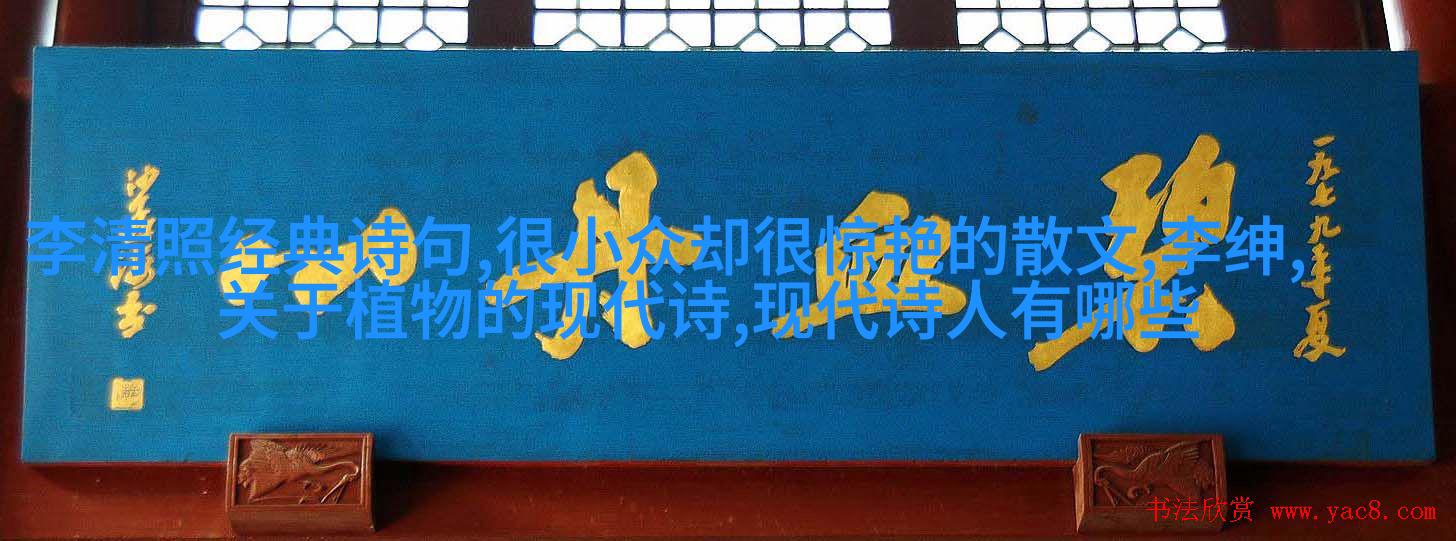 一九七九年夏
碧血丹心
沙孟海书
李清照经典诗句,很小众却很惊艳的散文,李绅,
关于植物的现代诗,现代诗人有哪些
书法欣赏 www.yac8.com